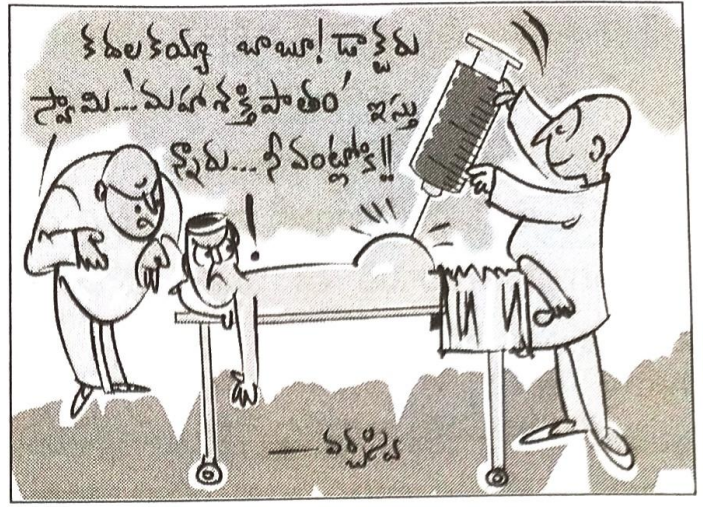 కదలకయ్యా బాబూ! డాక్టరు
స్వామి...'మహాశక్తిపాతం' ఇస్తు
న్నారు... నీ వంట్లోకి!!
!